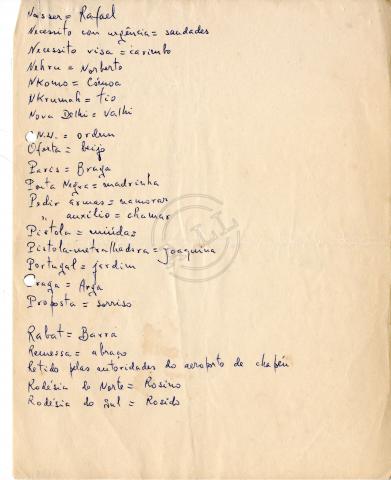 Nasser = Rafael
Necessito com urgência = saudades
Necessito visa = carimbo
Nehru = Norberto
NKomo = Cómoa
NKrumah = tio
Nova Delhi = Valhi
O.N.U. = ordem
Oferta = beijo
Paris = Braga
Ponta Negra = madrinha
Pedir armas = namorar
" auxílio = chamar
Pistola = miúdas
Pistola-metralhadora = Joaquina
Portugal = jardim
Praga = Arga
Proposta = sorriso
Rabat = Barra
Remessa = abraço
Retido pelas autoridades do aeroporto de chapéu
Rodésia do Norte = Rosino
Rodésia do Sul = Rosido